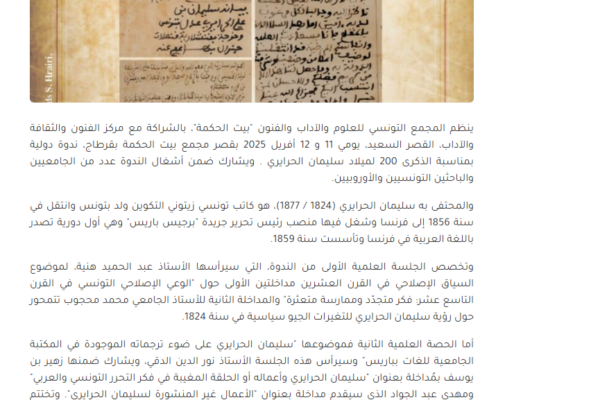 ds S. Hrairi.
ينظم المجمع التونسي للعلوم والآداب والفنون "بيت الحكمة"، بالشراكة مع مركز الفنون والثقافة
والآداب، القصر السعيد، يومي 11 و 12 أفريل 2025 بقصر مجمع بيت الحكمة بقرطاج، ندوة دولية
بمناسبة الذكرى 200 لميلاد سليمان الحرايري . ويشارك ضمن أشغال الندوة عدد من الجامعيين
والباحثين التونسيين والأوروبيين.
والمحتفى به سليمان الحرايري (1824 / 1877)، هو كاتب تونسي زيتوني التكوين ولد بتونس وانتقل في
سنة 1856 إلى فرنسا وشغل فيها منصب رئيس تحرير جريدة "برجيس باريس" وهي أول دورية تصدر
باللغة العربية في فرنسا وتأسست سنة 1859.
وتخصص الجلسة العلمية الأولى من الندوة، التي سيرأسها الأستاذ عبد الحميد هنية، لموضوع
السياق الإصلاحي في القرن العشرين مداخلتين الأولى حول "الوعي الإصلاحي التونسي في القرن
التاسع عشر: فكر متجدّد وممارسة متعثرة" والمداخلة الثانية للأستاذ الجامعي محمد محجوب تتمحور
حول رؤية سليمان الحرايري للتغيرات الجيو سياسية في سنة 1824.
أما الحصة العلمية الثانية فموضوعها "سليمان الحرايري على ضوء ترجماته الموجودة في المكتبة
الجامعية للغات بباريس" وسيرأس هذه الجلسة الأستاذ نور الدين الدقي، ويشارك ضمنها زهير بن
يوسف بمُداخلة بعنوان "سليمان الحرايري وأعماله أو الحلقة المغيبة في فكر التحرر التونسي والعربي"
ومهدي عبد الجواد الذي سيقدم مداخلة بعنوان "الأعمال غير المنشورة لسليمان الحرايري". وتختتم